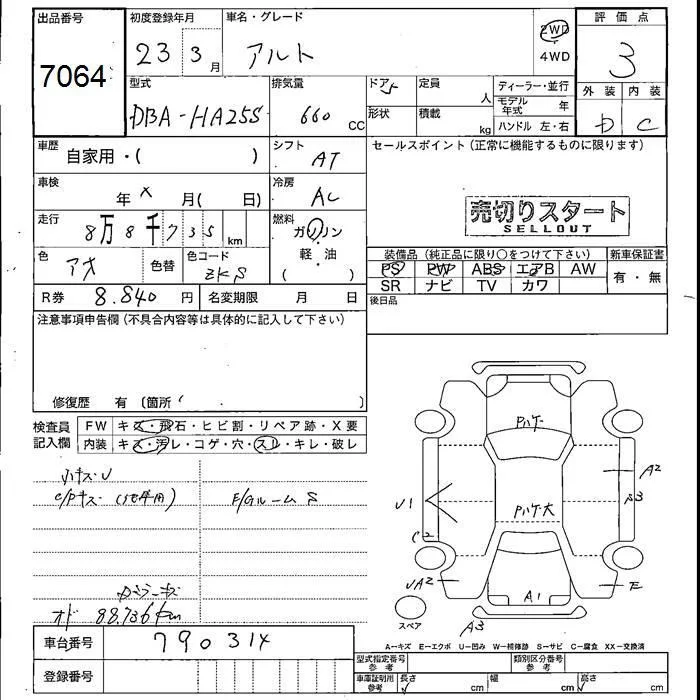 出品番号 初度登録年月 車名・グレード 評価点
7064 23 3月 アルト 2WD 3
4WD
型式 排気量 ドア 5 定員 人 ディーラー・並行 外装 内装
DBA-HA25S 660 cc 形状 積載 kg モデル年式 年 D C
ハンドル 左・右
車歴 自家用・( ) シフト AT セールスポイント (正常に機能するものに限ります)
車検 年 X 月( 日) 冷房 AC
売切りスタート
SELLOUT
走行 8万8千735 km 燃料 ガソリン
・
軽・油
( )
色 アオ 色替 色コード ZKS
装備品 (純正品に限り○をつけて下さい) 新車保証書
PS PW ABS エアB AW 有・無
SR ナビ TV カワ
R券 8.840 円 名変期限 月 日 後日品
注意事項申告欄 (不具合内容等は具体的に記入して下さい)
修復歴 有 (箇所 )
検査員 FW キズ・飛石・ヒビ割・リペア跡・X要
記入欄 内装 キズ・汚レ・コゲ・穴・スレ・キレ・破レ
小キズU
E/Gルーム S
オド 88.736km
Pハゲ
A2
B3
U1
Pハゲ大
C2
UA2
E
A1
スペア
A3
A-キズ E-エクボ U-凹み W-補修跡 S-サビ C-腐食 XX-交換済
車台番号 790314
型式指定番号 参考 類別区分番号 参考
登録番号
車庫証明用 参考 長さ cm 幅 cm 高さ cm